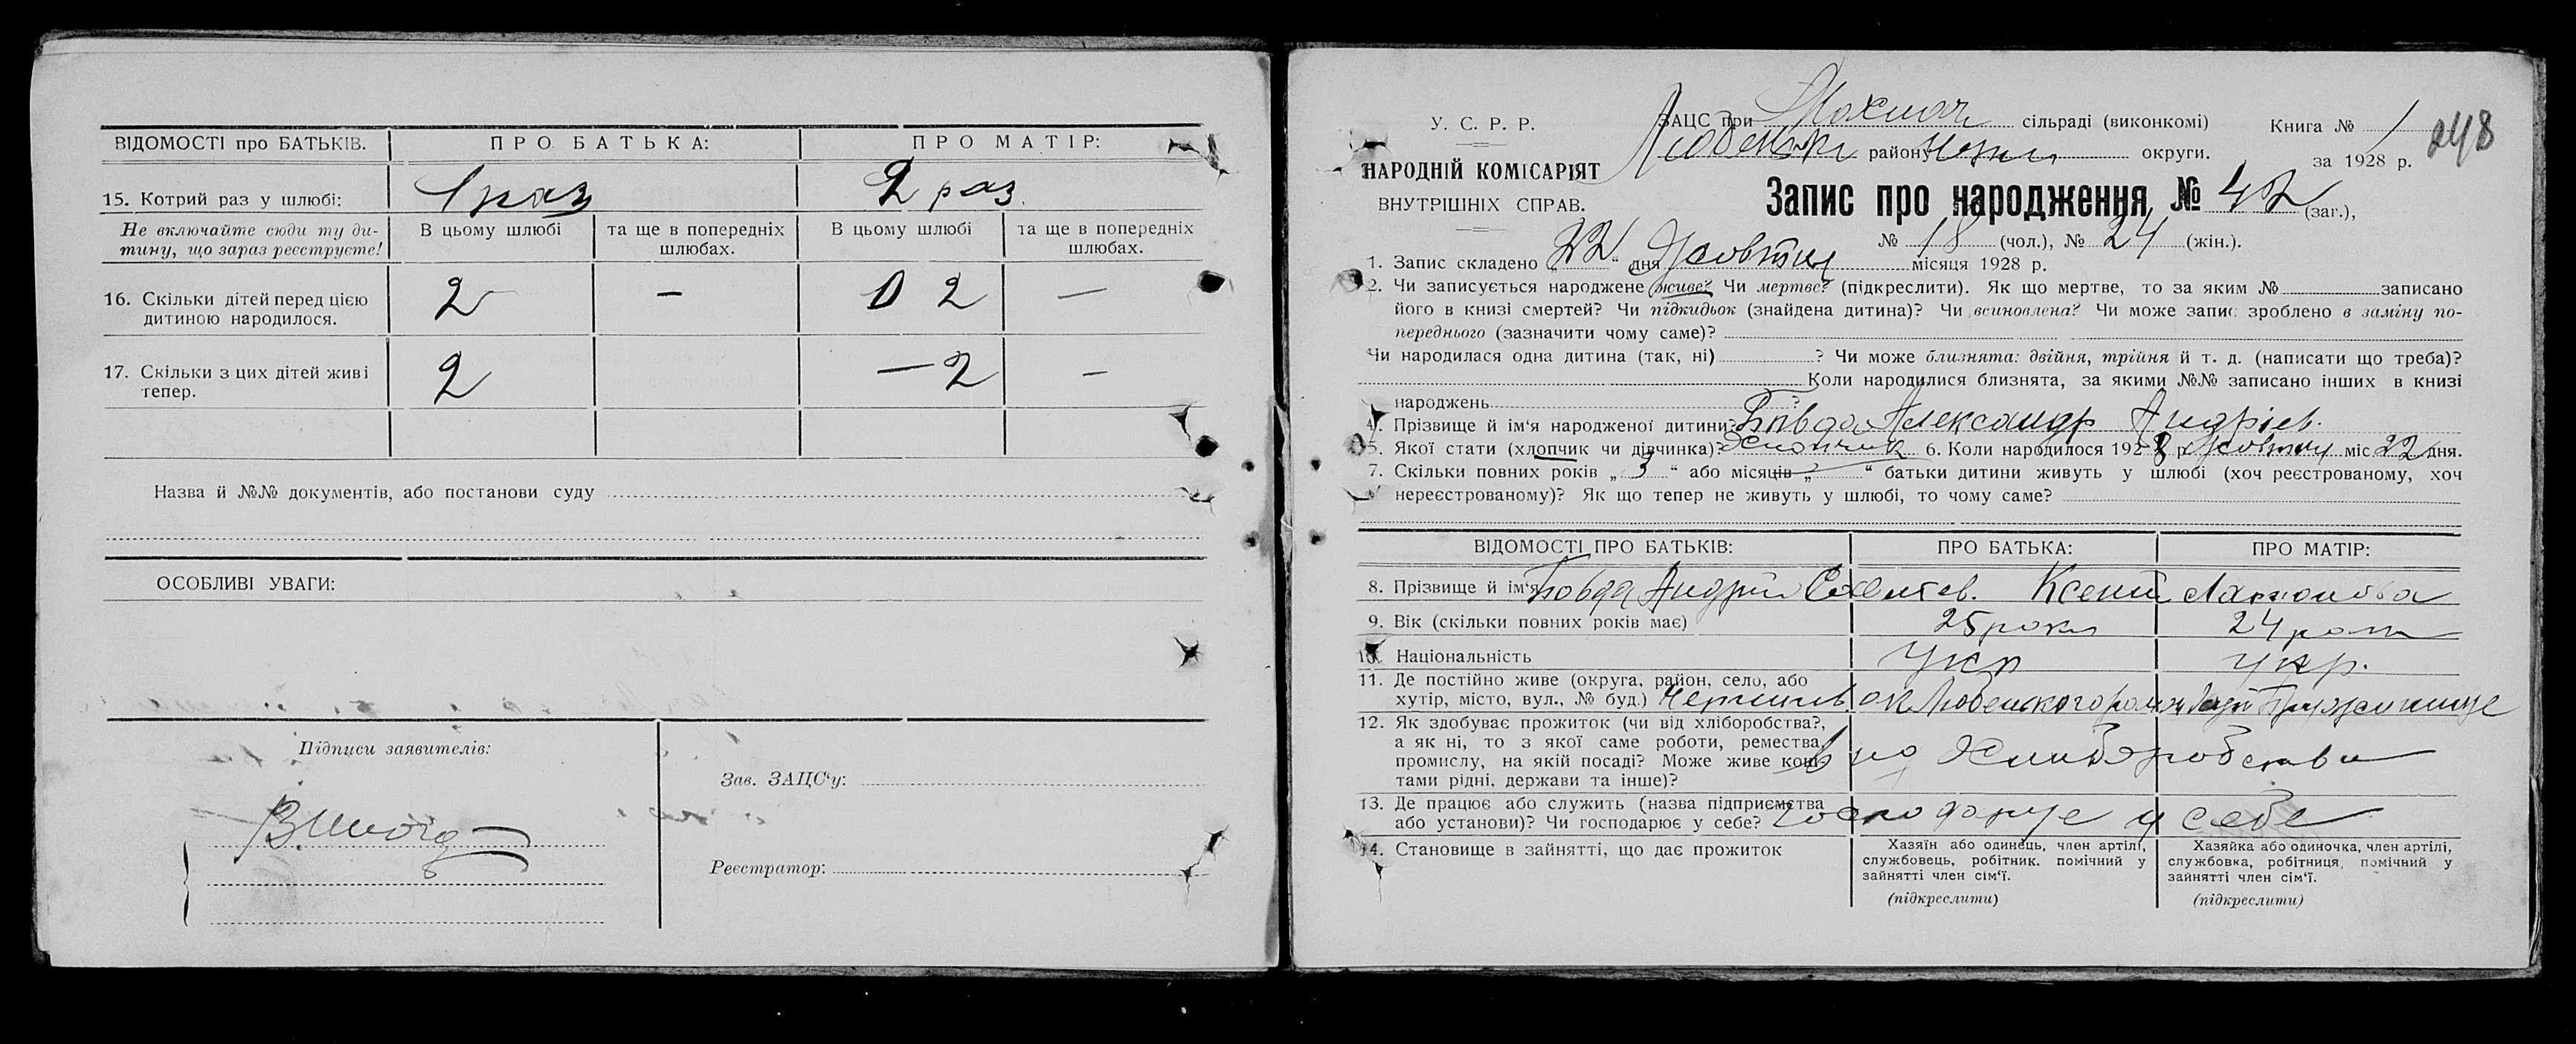 ВІДОМОСТІ про БАТЬКІВ. ПРО БАТЬКА: ПРО МАТІР:
15. Котрий раз у шлюбі: 1 раз 2 раз.
Не включайте сюди ту ди-
тину, що зараз реєструєте!
В цьому шлюбі та ще в попередніх шлюбах. В цьому шлюбі та ще в попередніх шлюбах.
16. Скільки дітей перед цією
дитиною народилося. 2 — 2 —
17. Скільки з цих дітей живі
тепер. 2 — 2 —
Назва й №№ документів, або постанови суду
ОСОБЛИВІ УВАГИ:
Підписи заявителів:
Зав. ЗАЦС‘у:
Реєстратор:
У. С. Р. Р.
НАРОДНІЙ КОМІСАРІЯТ
ВНУТРІШНІХ СПРАВ.
ЗАЦС при сільраді (виконкомі)
району округи.
Книга № 1 248
за 1928 р.
Запис про народження № 42 (заг.),
№ 18 (чол.), № 24 (жін.).
1. Запис складено „22“ дня Жовтня місяця 1928 р.
2. Чи записується народжене живе? Чи мертве? (підкреслити). Як що мертве, то за яким № записано
його в книзі смертей? Чи підкидьок (знайдена дитина)? Чи всиновлена? Чи може запис зроблено в заміну по-
переднього (зазначити чому саме)?
Чи народилася одна дитина (так, ні) ? Чи може близнята: двійня, трійня й т. д. (написати що треба)?
Коли народилися близнята, за якими №№ записано інших в книзі
народжень ?
4. Прізвище й ім‘я народженої дитини? Бовда Александр Андріев.
5. Якої статі (хлопчик чи дівчинка)? Хлопчик 6. Коли народилося 1928 р. Жовтня міс 22 дня.
7. Скільки повних років „3“ або місяців „ “ батьки дитини живуть у шлюбі (хоч реєстрованому, хоч
нереєстрованому)? Як що тепер не живуть у шлюбі, то чому саме?
ВІДОМОСТІ ПРО БАТЬКІВ: ПРО БАТЬКА: ПРО МАТІР:
8. Прізвище й ім‘я Бовда Андрій Ксенія
9. Вік (скільки повних років має) 25 роки 24 роки
10. Національність Укр укр.
11. Де постійно живе (округа, район, село, або
хутір, місто, вул., № буд.)
12. Як здобуває прожиток (чи від хліборобства?,
а як ні, то з якої саме роботи, ремества,
промислу, на якій посаді? Може живе кош-
тами рідні, держави та інше)? Хлиборобства
13. Де працює або служить (назва підприємства
або установи)? Чи господарює у себе? Господарує у себе
14. Становище в зайнятті, що дає прожиток
Хазяїн або одинець, член артілі,
службовець, робітник. помічний у
зайнятті член сім‘ї.
(підкреслити)
Хазяйка або одиночка, член артілі,
службовка, робітниця, помічний у
зайнятті член сім‘ї.
(підкреслити)